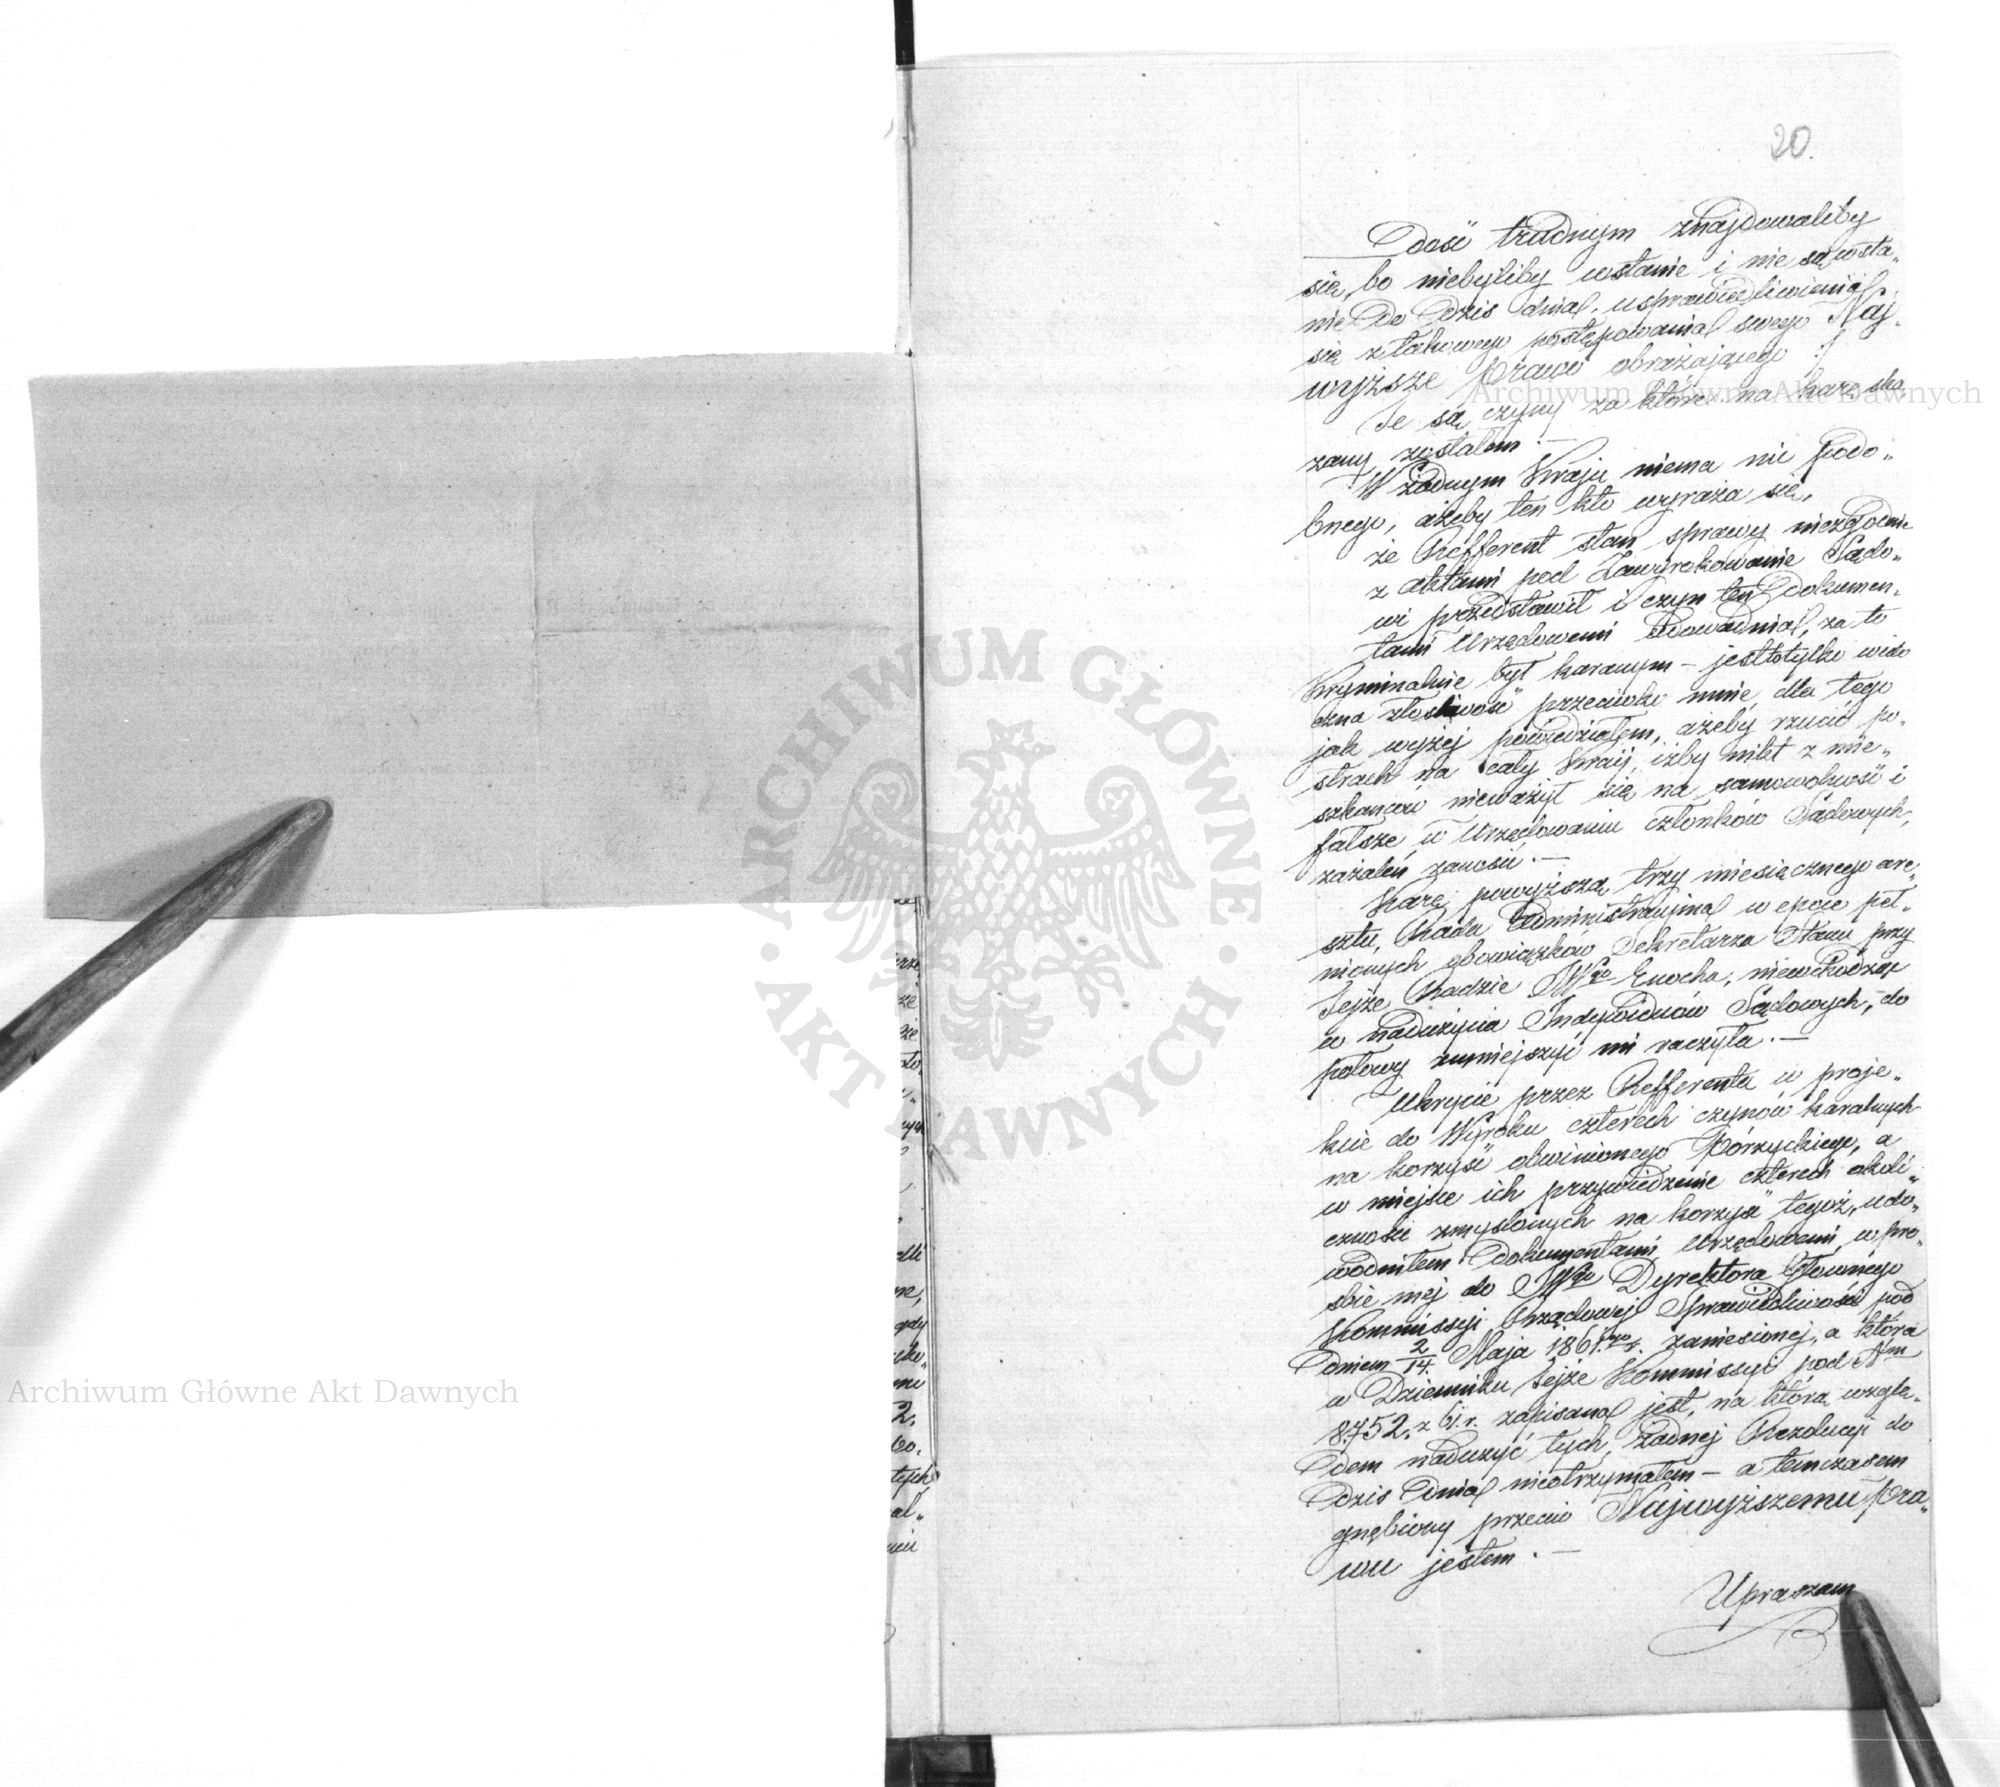 20.
Dość trudnym znajdowaliby
się, bo niebyliby wstanie i nie są wsta„
nie do dziś dnia, usprawiedliwienia
się z takowego postępowania swego Naj„
wyższe Prawo obrażającego :/
Te są czyny za które na karę ska„
zany zostałem. —
W żadnym Kraju niema nic podo„
bnego, ażeby ten kto wyraża się,
że Refferent stan sprawy niezgodnie
z aktami pod Zawyrokowanie Sądo„
wi przedstawił i czyn ten dokumen„
tami Urzędowemi udowadniał, za to
Kryminalnie był karanym — jest to tylko wido
czna złośliwość przeciwko mnie, dla tego
jak wyżej powiedziałem, ażeby rzucić po„
strach na cały Kraij, iżby nikt z mie„
szkańców nieważył się na samowolność i
fałsze w Urzędowaniu członków Sądowych,
zażaleń zanosić. —
Karę powyższą trzy miesięcznego are„
sztu, Rada Administracyjna w epoce peł„
nionych obowiązków Sekretarza Stanu przy
tejże Radzie JWgo Enocha, niewchodząc
w nadużycia Indywiduów Sądowych, do
połowy zmniejszyć mi raczyła. —
Ukrycie przez Refferenta w proje„
kcie do Wyroku czterech czynów karalnych
na korzyść obwinionego Górzyckiego, a
w miejsce ich przywiedzenie czterech okoli„
czności zmyślonych na korzyść tegoż, udo„
wodniłem dokumentami Urzędowemi w pro„
śbie mej do JWgo Dyrektora Głównego
Kommissyi Rządowej Sprawiedliwości pod
dniem 2/14. Maja 1861.go r. zaniesionej, a która
w Dzienniku tejże Kommissyi pod Nm
8,752. z 61. r. zapisaną jest, na którą wzglę„
dem nadużyć tych, żadnej Rezolucyi do
dziś dnia nieotrzymałem — a temczasem
gnębiony przeciw Najwyższemu Pra„
wu jestem. —
Upraszam
Archiwum Główne Akt Dawnych
Archiwum Główne Akt Dawnych
ARCHIWUM GŁÓWNE · AKT DAWNYCH ·